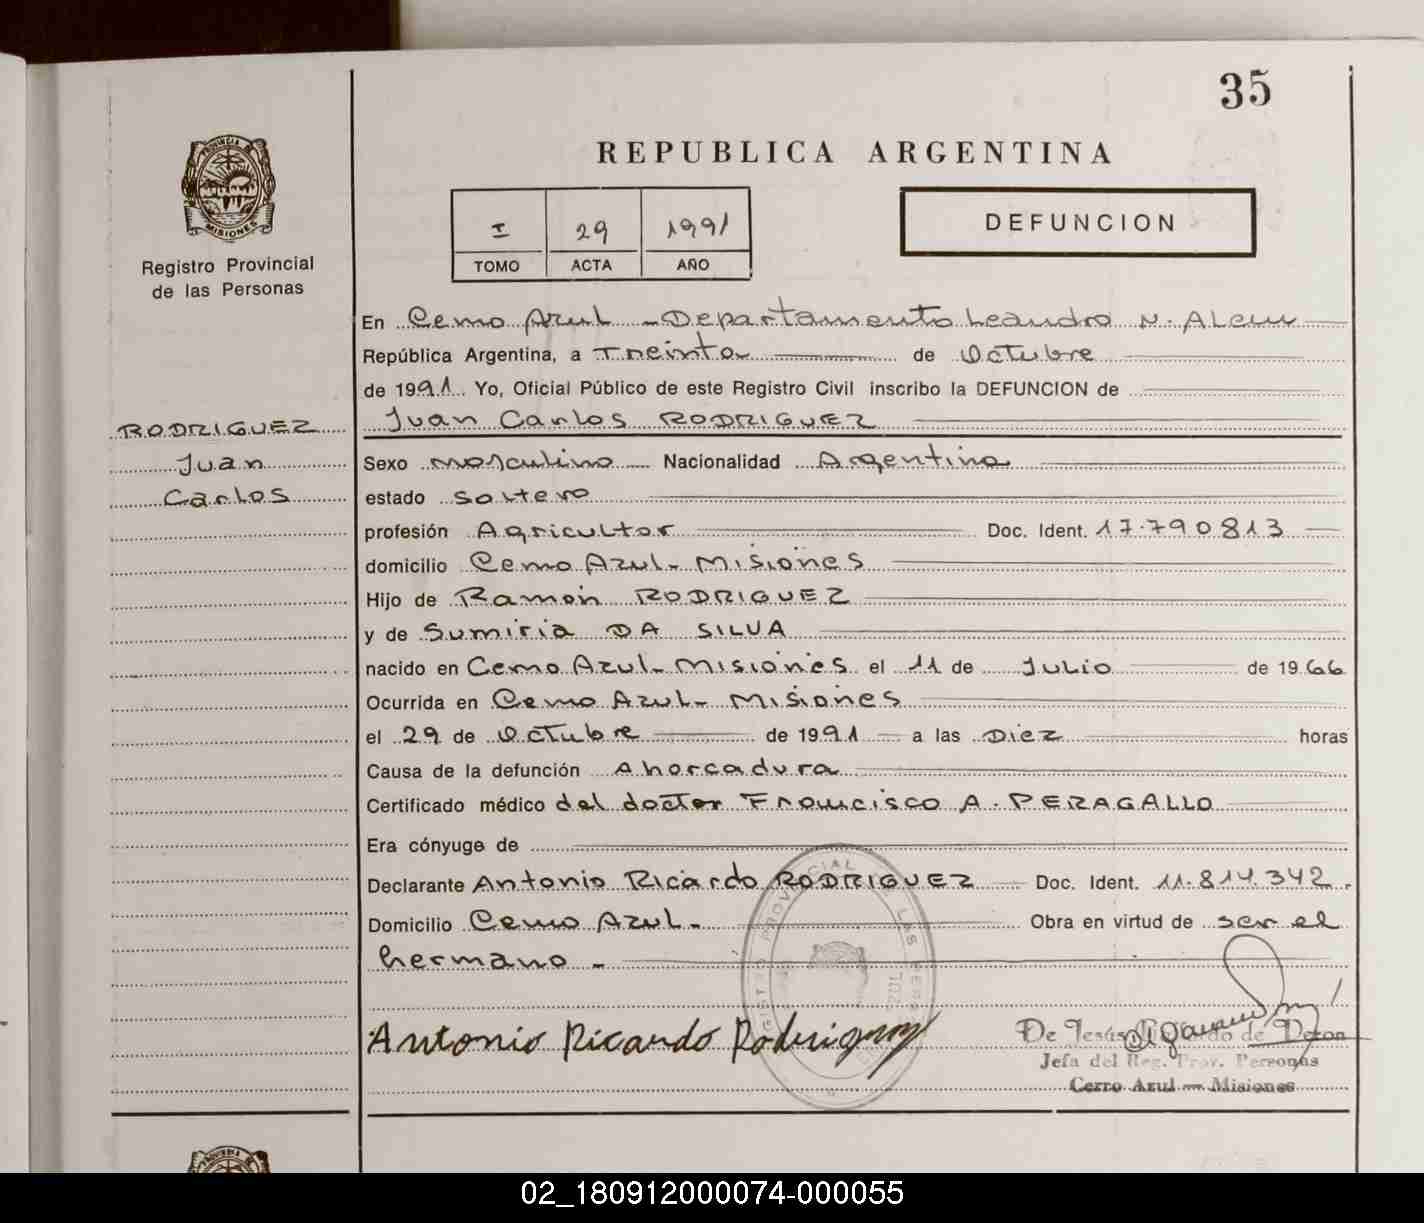 35
PROVINCIA DE
MISIONES
Registro Provincial
de las Personas
REPUBLICA ARGENTINA
I 29 1991
TOMO ACTA AÑO
DEFUNCION
En Cerro Azul - Departamento Leandro N. Alem
República Argentina, a Treinta de Octubre
de 1991. Yo, Oficial Público de este Registro Civil inscribo la DEFUNCION de
Juan Carlos RODRIGUEZ
RODRIGUEZ
Juan
Carlos
Sexo masculino Nacionalidad Argentina
estado soltero
profesión Agricultor Doc. Ident. 17.790813
domicilio Cerro Azul - Misiones
Hijo de Ramón RODRIGUEZ
y de Sumiria DA SILVA
nacido en Cerro Azul - Misiones el 11 de Julio de 1966
Ocurrida en Cerro Azul - Misiones
el 29 de Octubre de 1991 a las Diez horas
Causa de la defunción Ahorcadura
Certificado médico del doctor Francisco A. PERAGALLO
Era cónyuge de
Declarante Antonio Ricardo RODRIGUEZ Doc. Ident. 11.814.342.
Domicilio Cerro Azul - Obra en virtud de ser el
hermano -
Antonio Ricardo Rodriguez
De Jesús de Deton
Jefa del Reg. Prov. Personas
Cerro Azul — Misiones
02_180912000074-000055